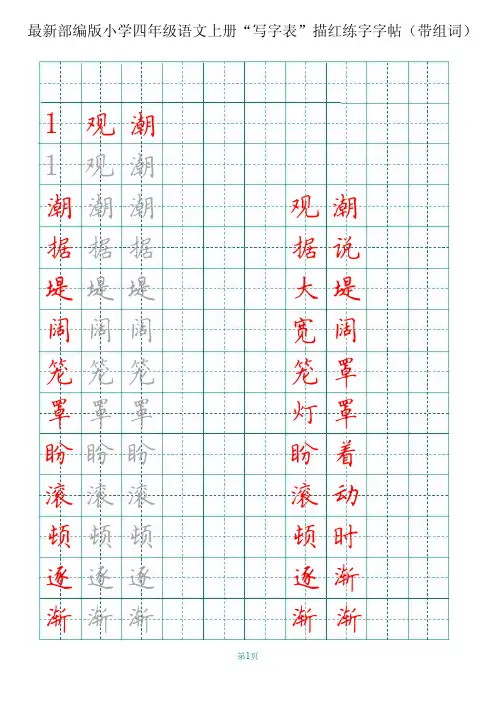 最新部编版小学四年级语文上册“写字表”描红练字字帖（带组词）
1 观潮
1 观潮
潮潮潮 观潮
据据据 据说
堤堤堤 大堤
阔阔阔 宽阔
笼笼笼 笼罩
罩罩罩 灯罩
盼盼盼 盼着
滚滚滚 滚动
顿顿顿 顿时
逐逐逐 逐渐
渐渐渐 渐渐
第1页